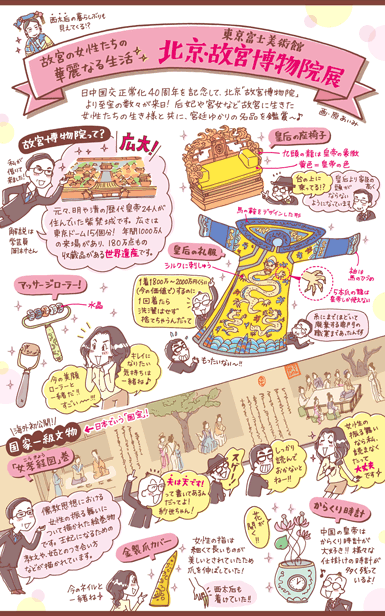 西太后の暮らしぶりも
見えてくる!?
故宮の女性たちの
華麗なる生活
東京富士美術館
北京・故宮博物院展
日中国交正常化40周年を記念して、北京「故宮博物院」
より至宝の数々が来日! 后妃や宮女など故宮に生きた
女性たちの生き様と共に、宮廷ゆかりの名品を鑑賞〜♪
画・原あいみ
故宮博物院って?
広大!
私が
解説は
学芸員
元々、明や清の歴代皇帝24人が
住んでいた紫禁城です。広さは
東京ドーム15個分! 年間1000万人
の来場があり、180万点もの
収蔵品がある世界遺産です。
皇后の座椅子
九頭の龍は皇帝の象徴
黄色=皇帝の色
台の上に
乗ってる!?
皇后より家臣の
頭が高く
ならない
ようになっています
馬の鞍をデザインした形
皇后の礼服
シルクに刺しゅう
1着1800万〜2000万円くらい
(今の価値で)するのに
1回着たら
洗濯はせず
捨てちゃうんだって
もったいない〜!!
袖は
馬のひづめ
5本爪の龍は
皇帝しか使えない
糸にまでほどいて
廃棄する専門の
職業まであったんです
マッサージローラー!
水晶
今の美顔
ローラーと
一緒だ!!
すごい〜!!
キレイに
なりたい
気持ちは
一緒ね♪
海外初公開!!
日本でいう「国宝」!
国家一級文物
「女孝経図」巻
夫は天です!
って書いてあるん
だってよ!
紗世ちゃん!
スゲー!
しっかり
読んで
おかない
とね〜!!
女性の
振る舞い
なら私、
読まなく
たって
大丈夫
です!
儒教思想における
女性の振る舞いに
ついて描かれた絵巻物
です。王妃になるための
教えや、姑とのつき合い方
などが描かれています。
金製爪カバー
今のネイルと
一緒ね
女性の指は
細くて長いものが
美しいとされていたため
爪を伸ばしていた!
西太后も
着けていた!!
花が
開く!!
からくり時計
中国の皇帝は
からくり時計が
大好き!! 様々な
仕掛けの時計が
多く残って
いるよ!